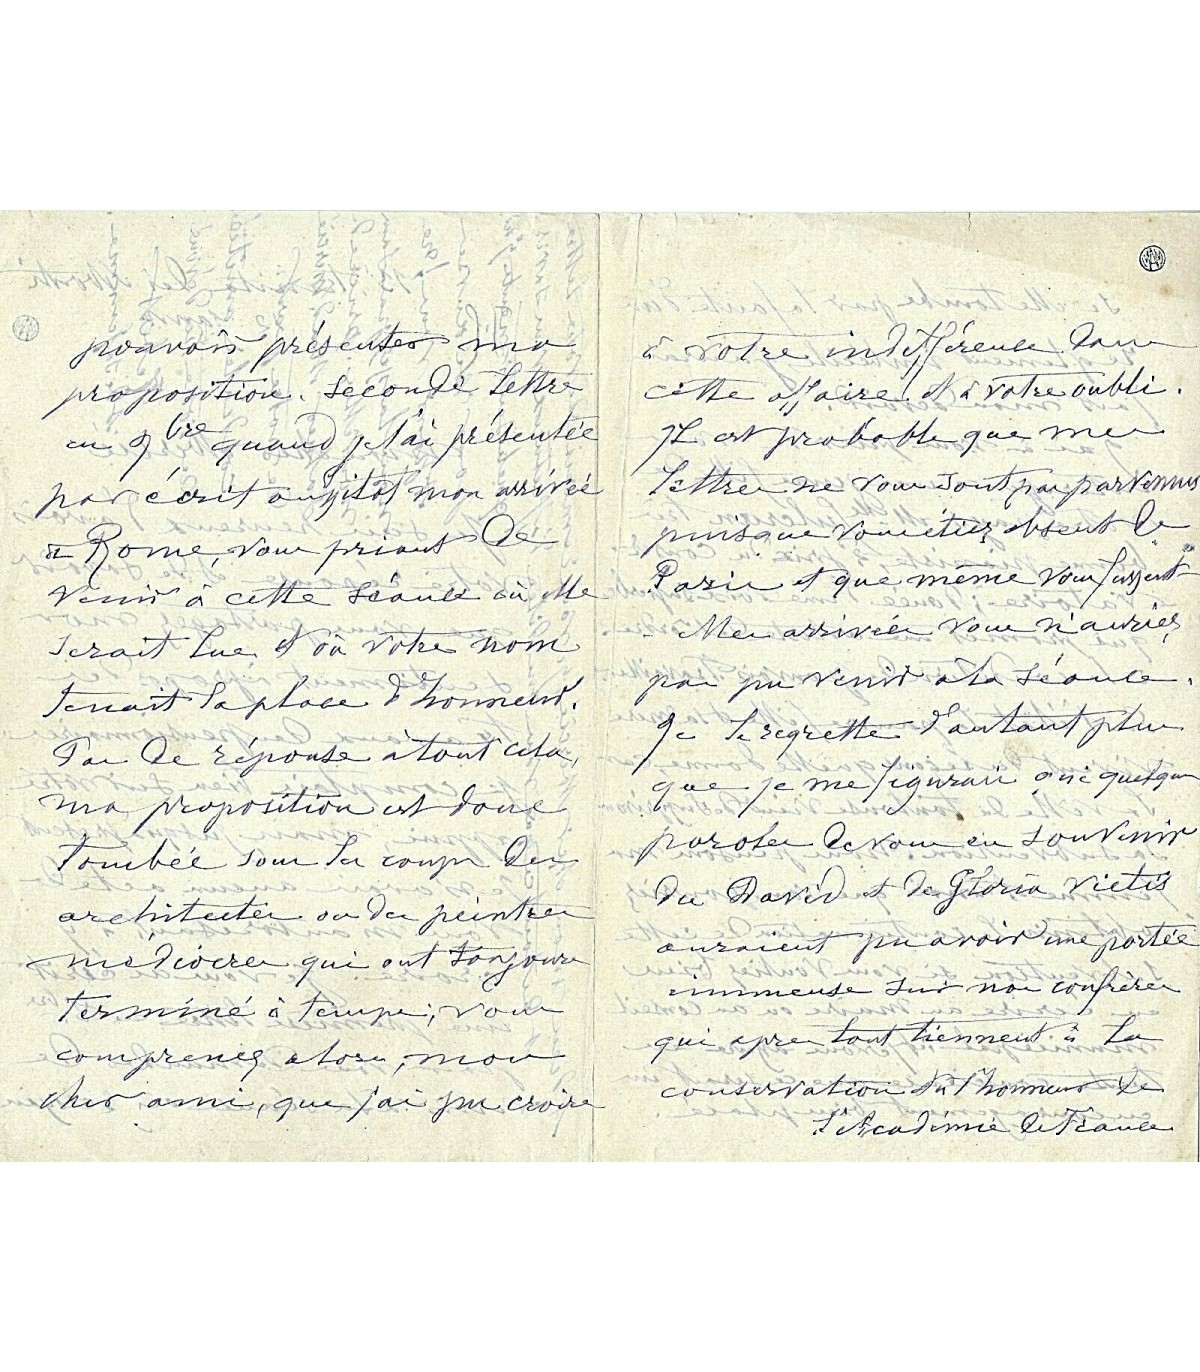 pouvais présenter ma
proposition. seconde lettre
en 9bre quand je l'ai présentée
par écrit aussitôt mon arrivée
à Rome, vous priant de
venir à cette séance où elle
serait lue et où votre nom
tenait la place d'honneur.
Pas de réponse à tout cela,
ma proposition est donc
tombée sous les coups des
architectes ou des peintres
médiocres qui ont toujours
terminé à temps; vous
comprenez alors, mon
cher ami, que j'ai pu croire
à votre indifférence dans
cette affaire et à votre oubli.
Il est probable que mes
lettres ne vous sont pas parvenues
puisque vous étiez absent de
Paris et que même vous fussent
elles arrivées vous n'auriez
pas pu venir à la séance.
Je le regrette d'autant plus
que je me figurais que quelques
paroles de vous en souvenir
du David et de Gloria Victis
auraient pu avoir une portée
immense sur nos confrères
qui après tout tiennent à la
conservation de l'honneur de
l'Académie de France